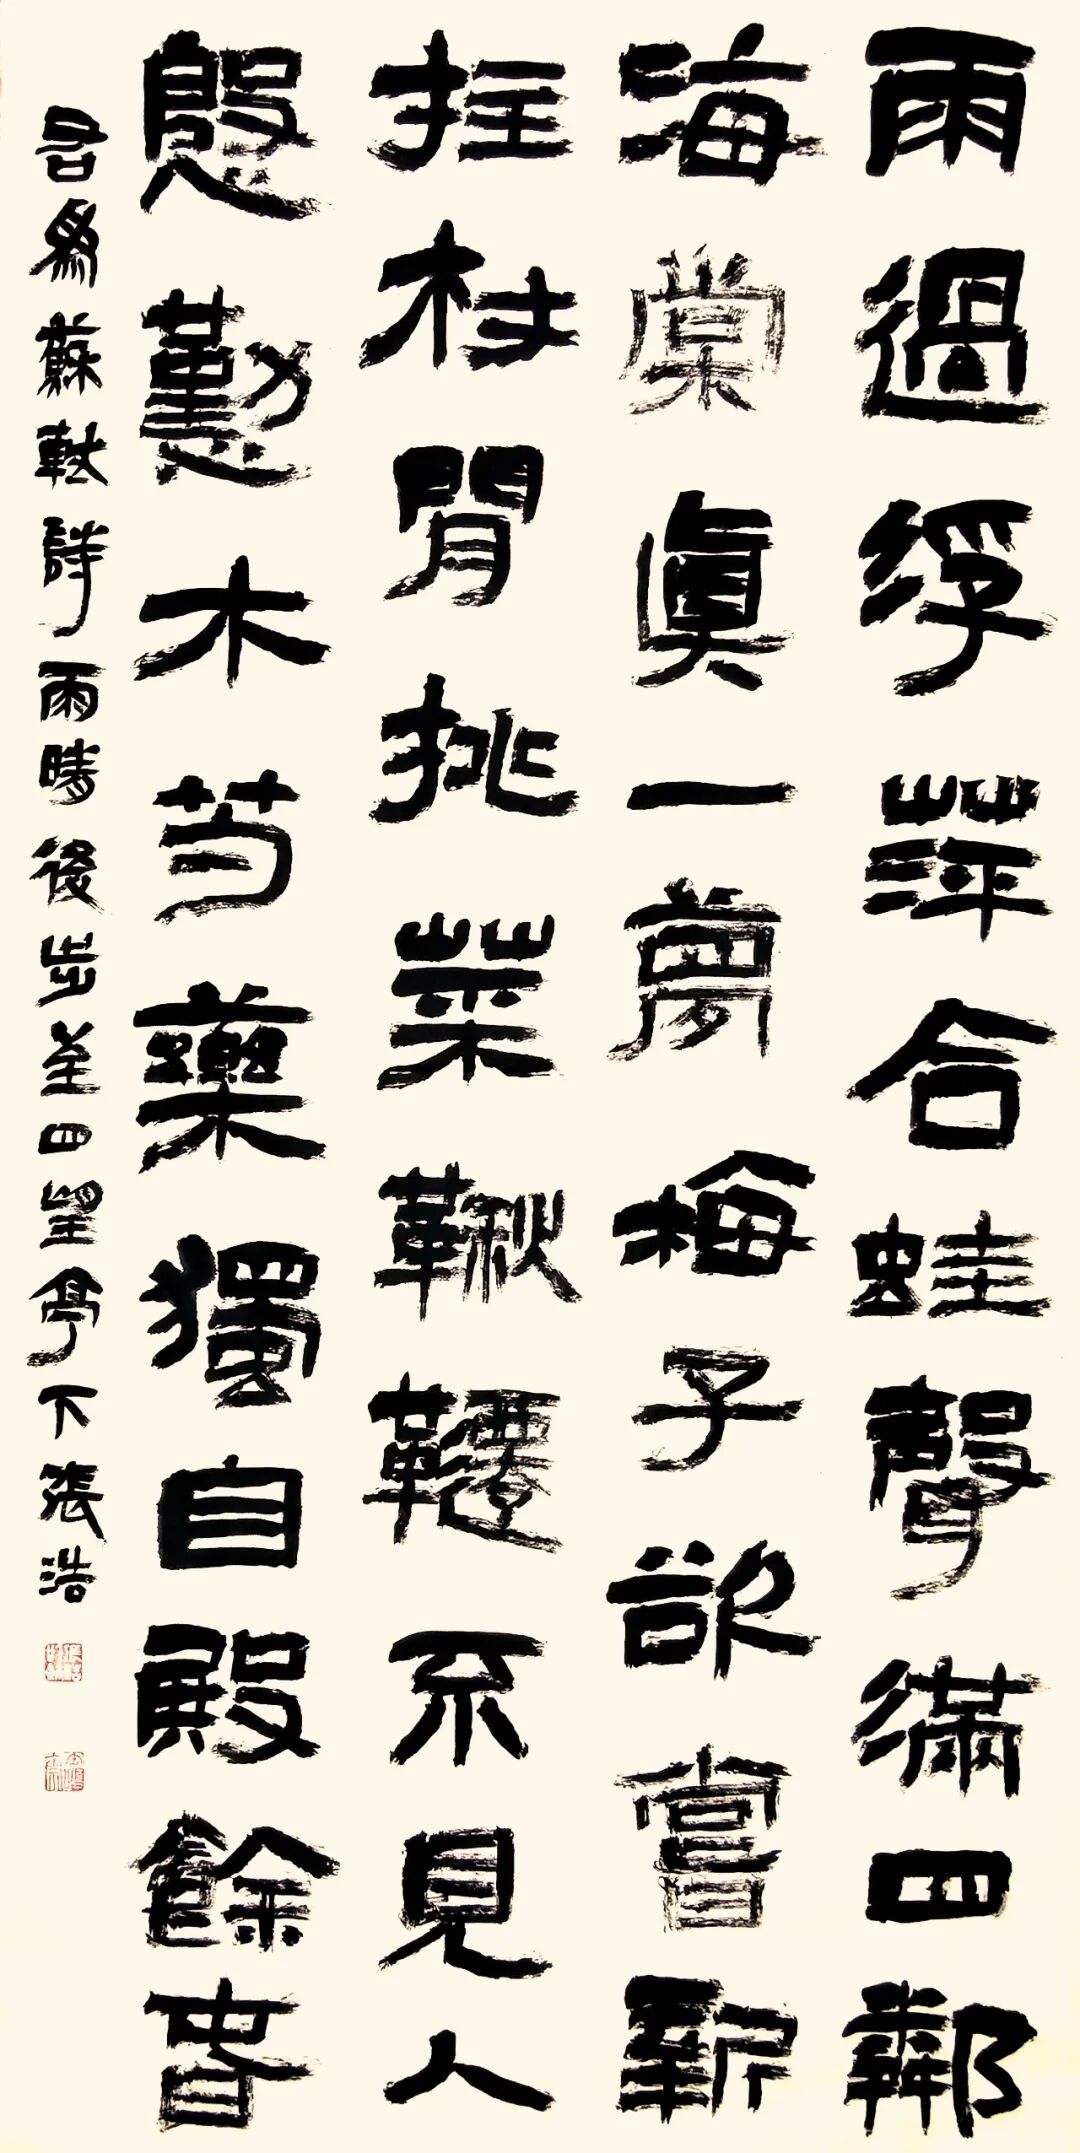 雨過浮萍合蛙聲滿四鄰
海棠眞一夢梅子欲嘗新
拄杖閒挑菜鞦韆不見人
慇懃木芍藥獨自殿餘春
右爲蘇軾詩雨晴後步至四望亭下張浩